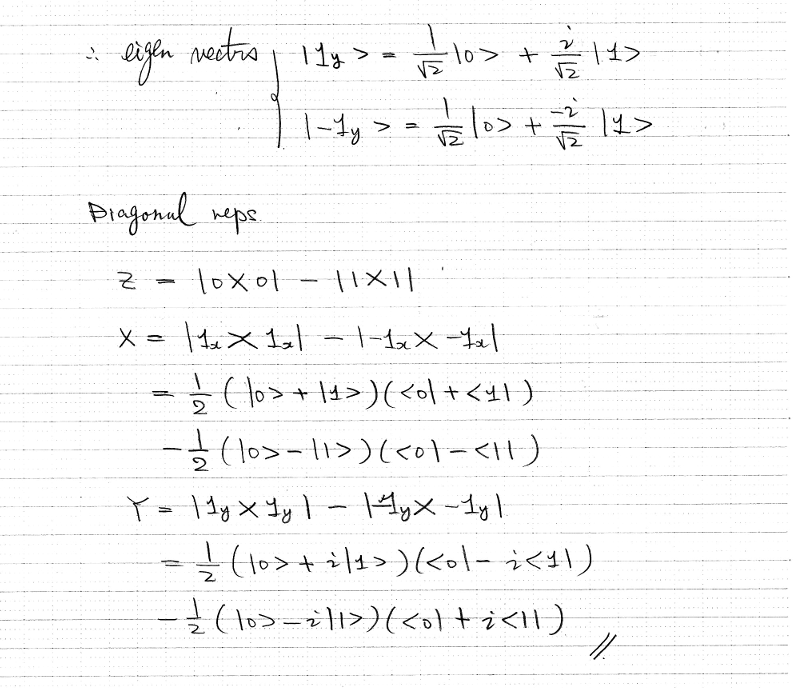 ∴ eigen vectrs { |1y> = 1/√2 |0> + i/√2 |1>
|-1y> = 1/√2 |0> + -i/√2 |1>
Diagonal reps.
Z = |0X0| - |1X1|
X = |1x X 1x| - |-1x X -1x|
= 1/2 (|0> + |1>)(<0| + <1|)
- 1/2 (|0> - |1>)(<0| - <1|)
Y = |1y X 1y| - |-1y X -1y|
= 1/2 (|0> + i|1>)(<0| - i<1|)
- 1/2 (|0> - i|1>)(<0| + i<1|) //